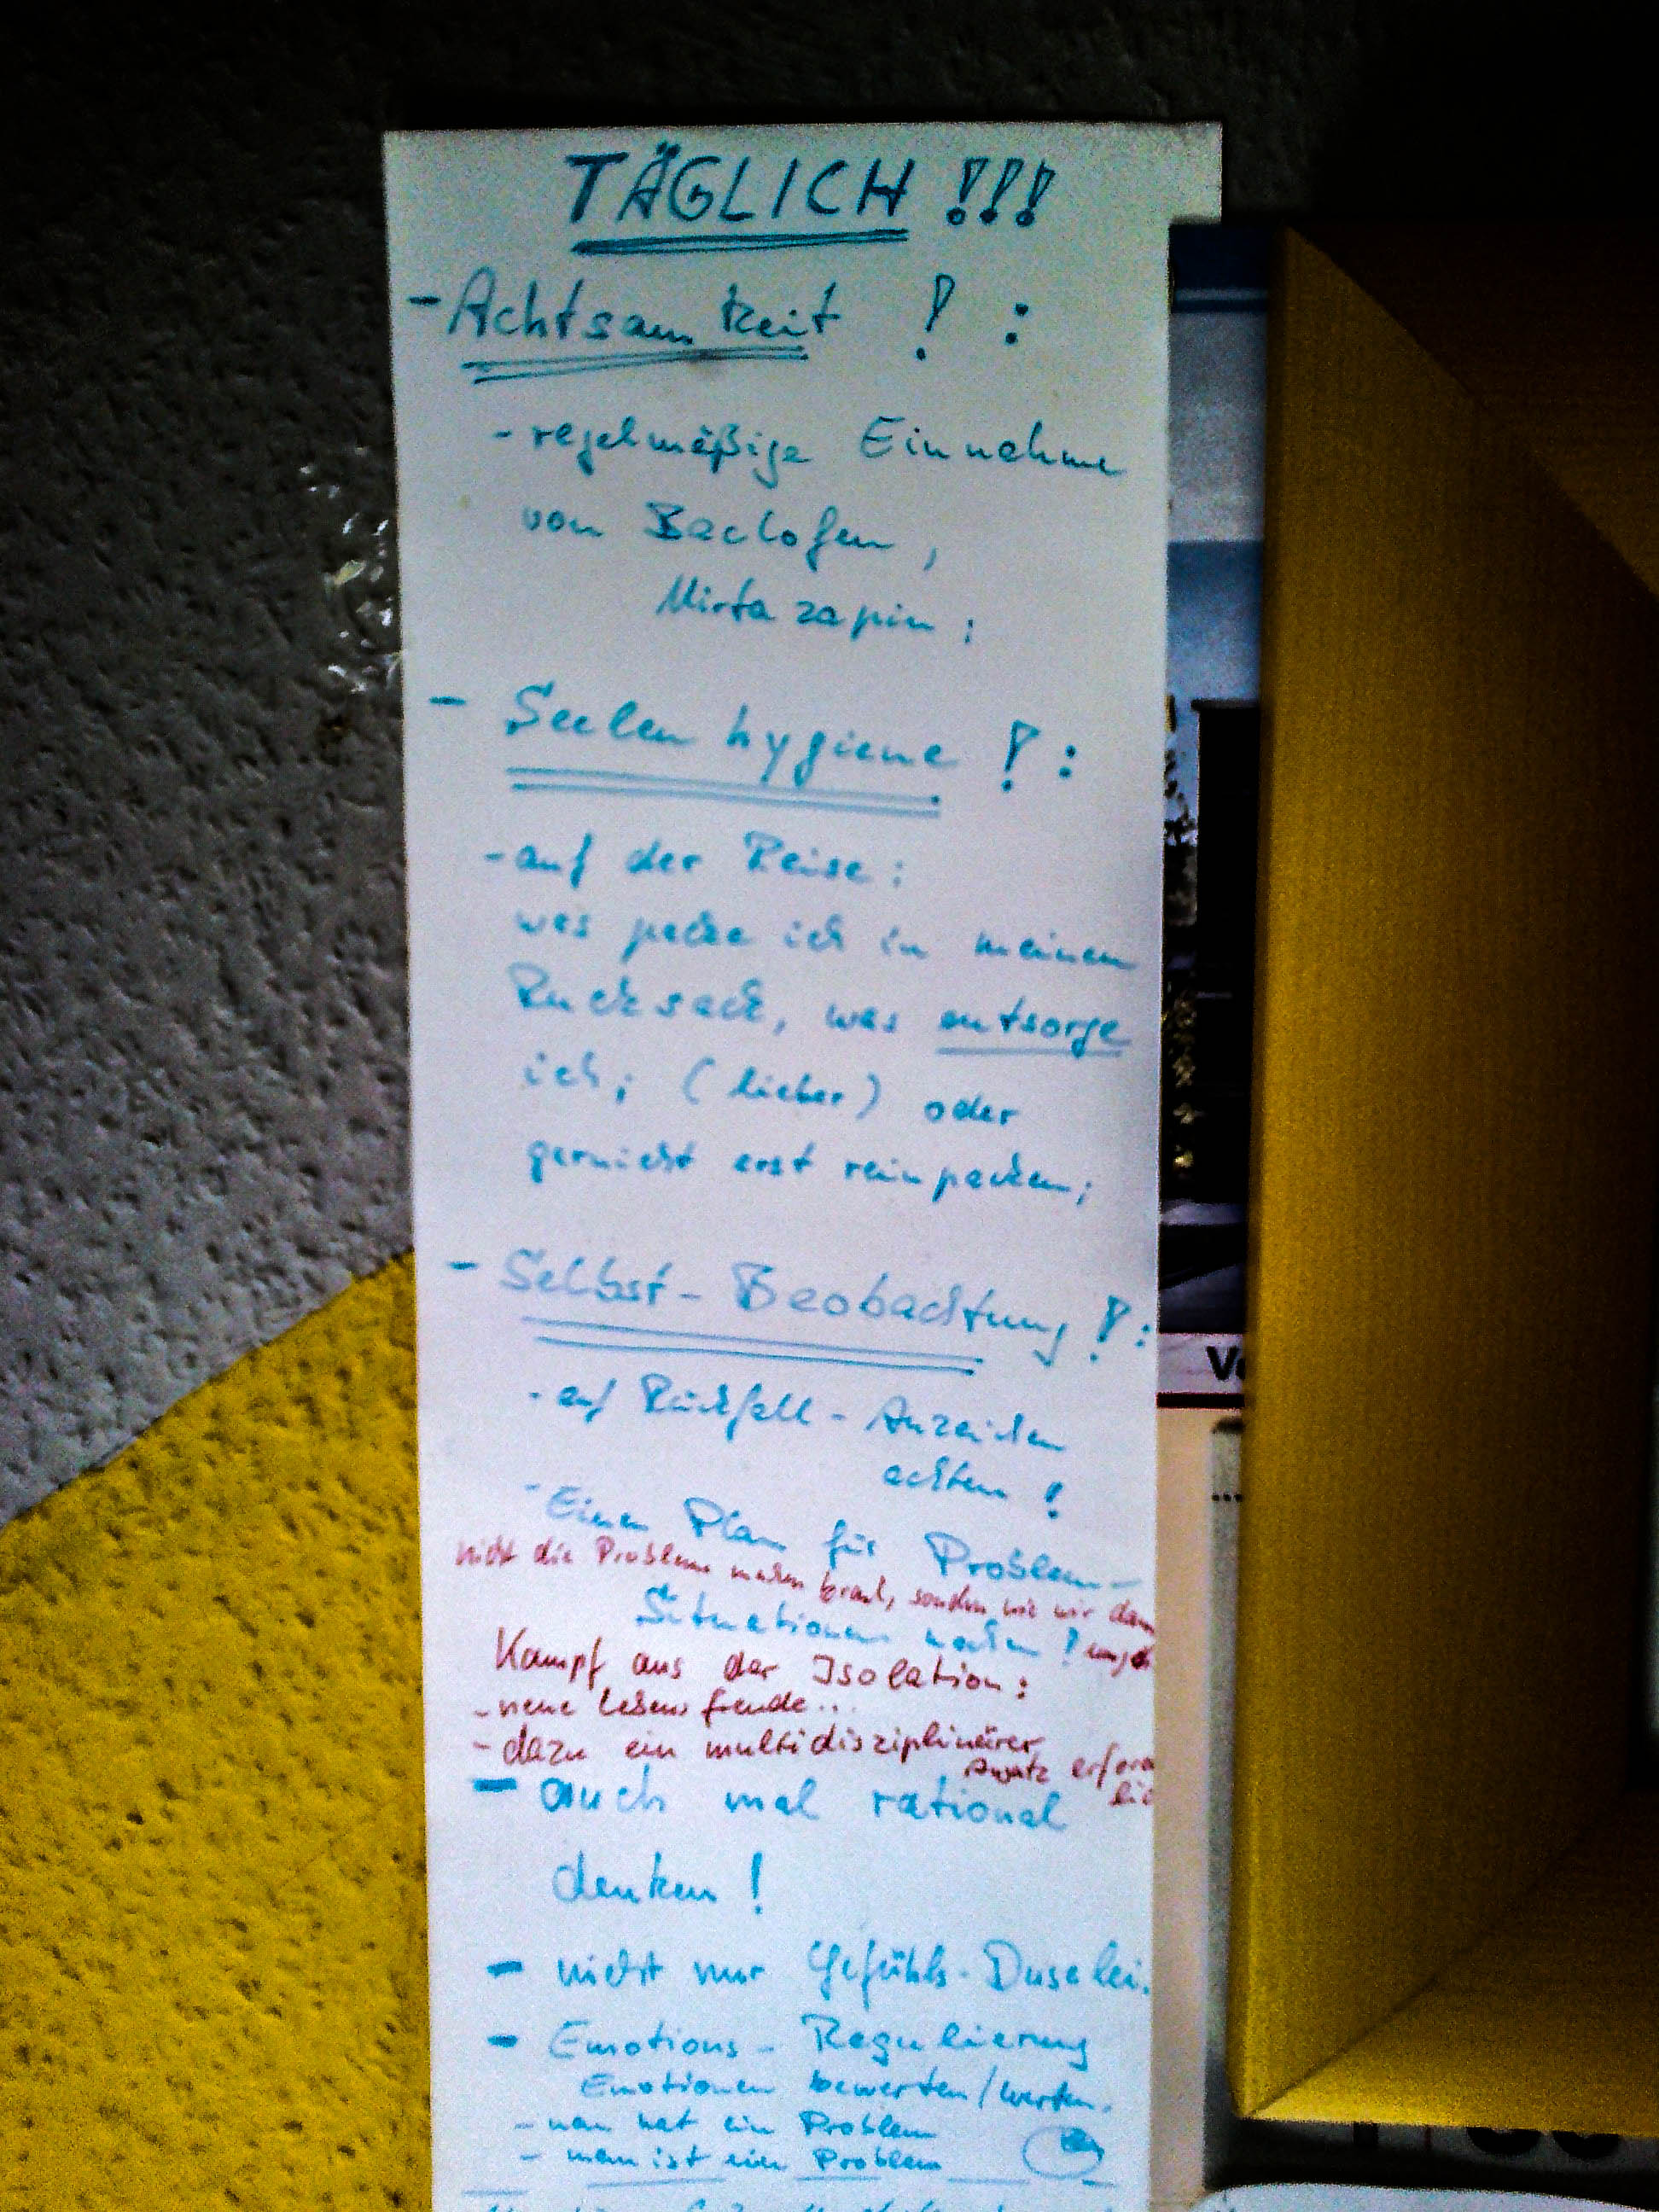 TÄGLICH !!!
- Achtsamkeit ! :
- regelmäßige Einnahme
von Baclofen,
Mirtazapin ;
- Seelenhygiene ! :
- auf der Reise :
was packe ich in meinen
Rucksack, was entsorge
ich; (lieber) oder
garnicht erst reinpacken;
- Selbst-Beobachtung ! :
- auf Rückfall-Anzeichen
achten !
- Einen Plan für Problem-
nicht die Probleme machen krank, sondern wie wir damit
Situationen machen !
Kampf aus der Isolation :
- neue Lebensfreude ...
- dazu ein multidisziplinärer
Ansatz
- auch mal rational
denken !
- nicht nur Gefühls-Duselei.
- Emotions-Regulierung
Emotionen bewerten/werten.
- man hat ein Problem
- man ist ein Problem